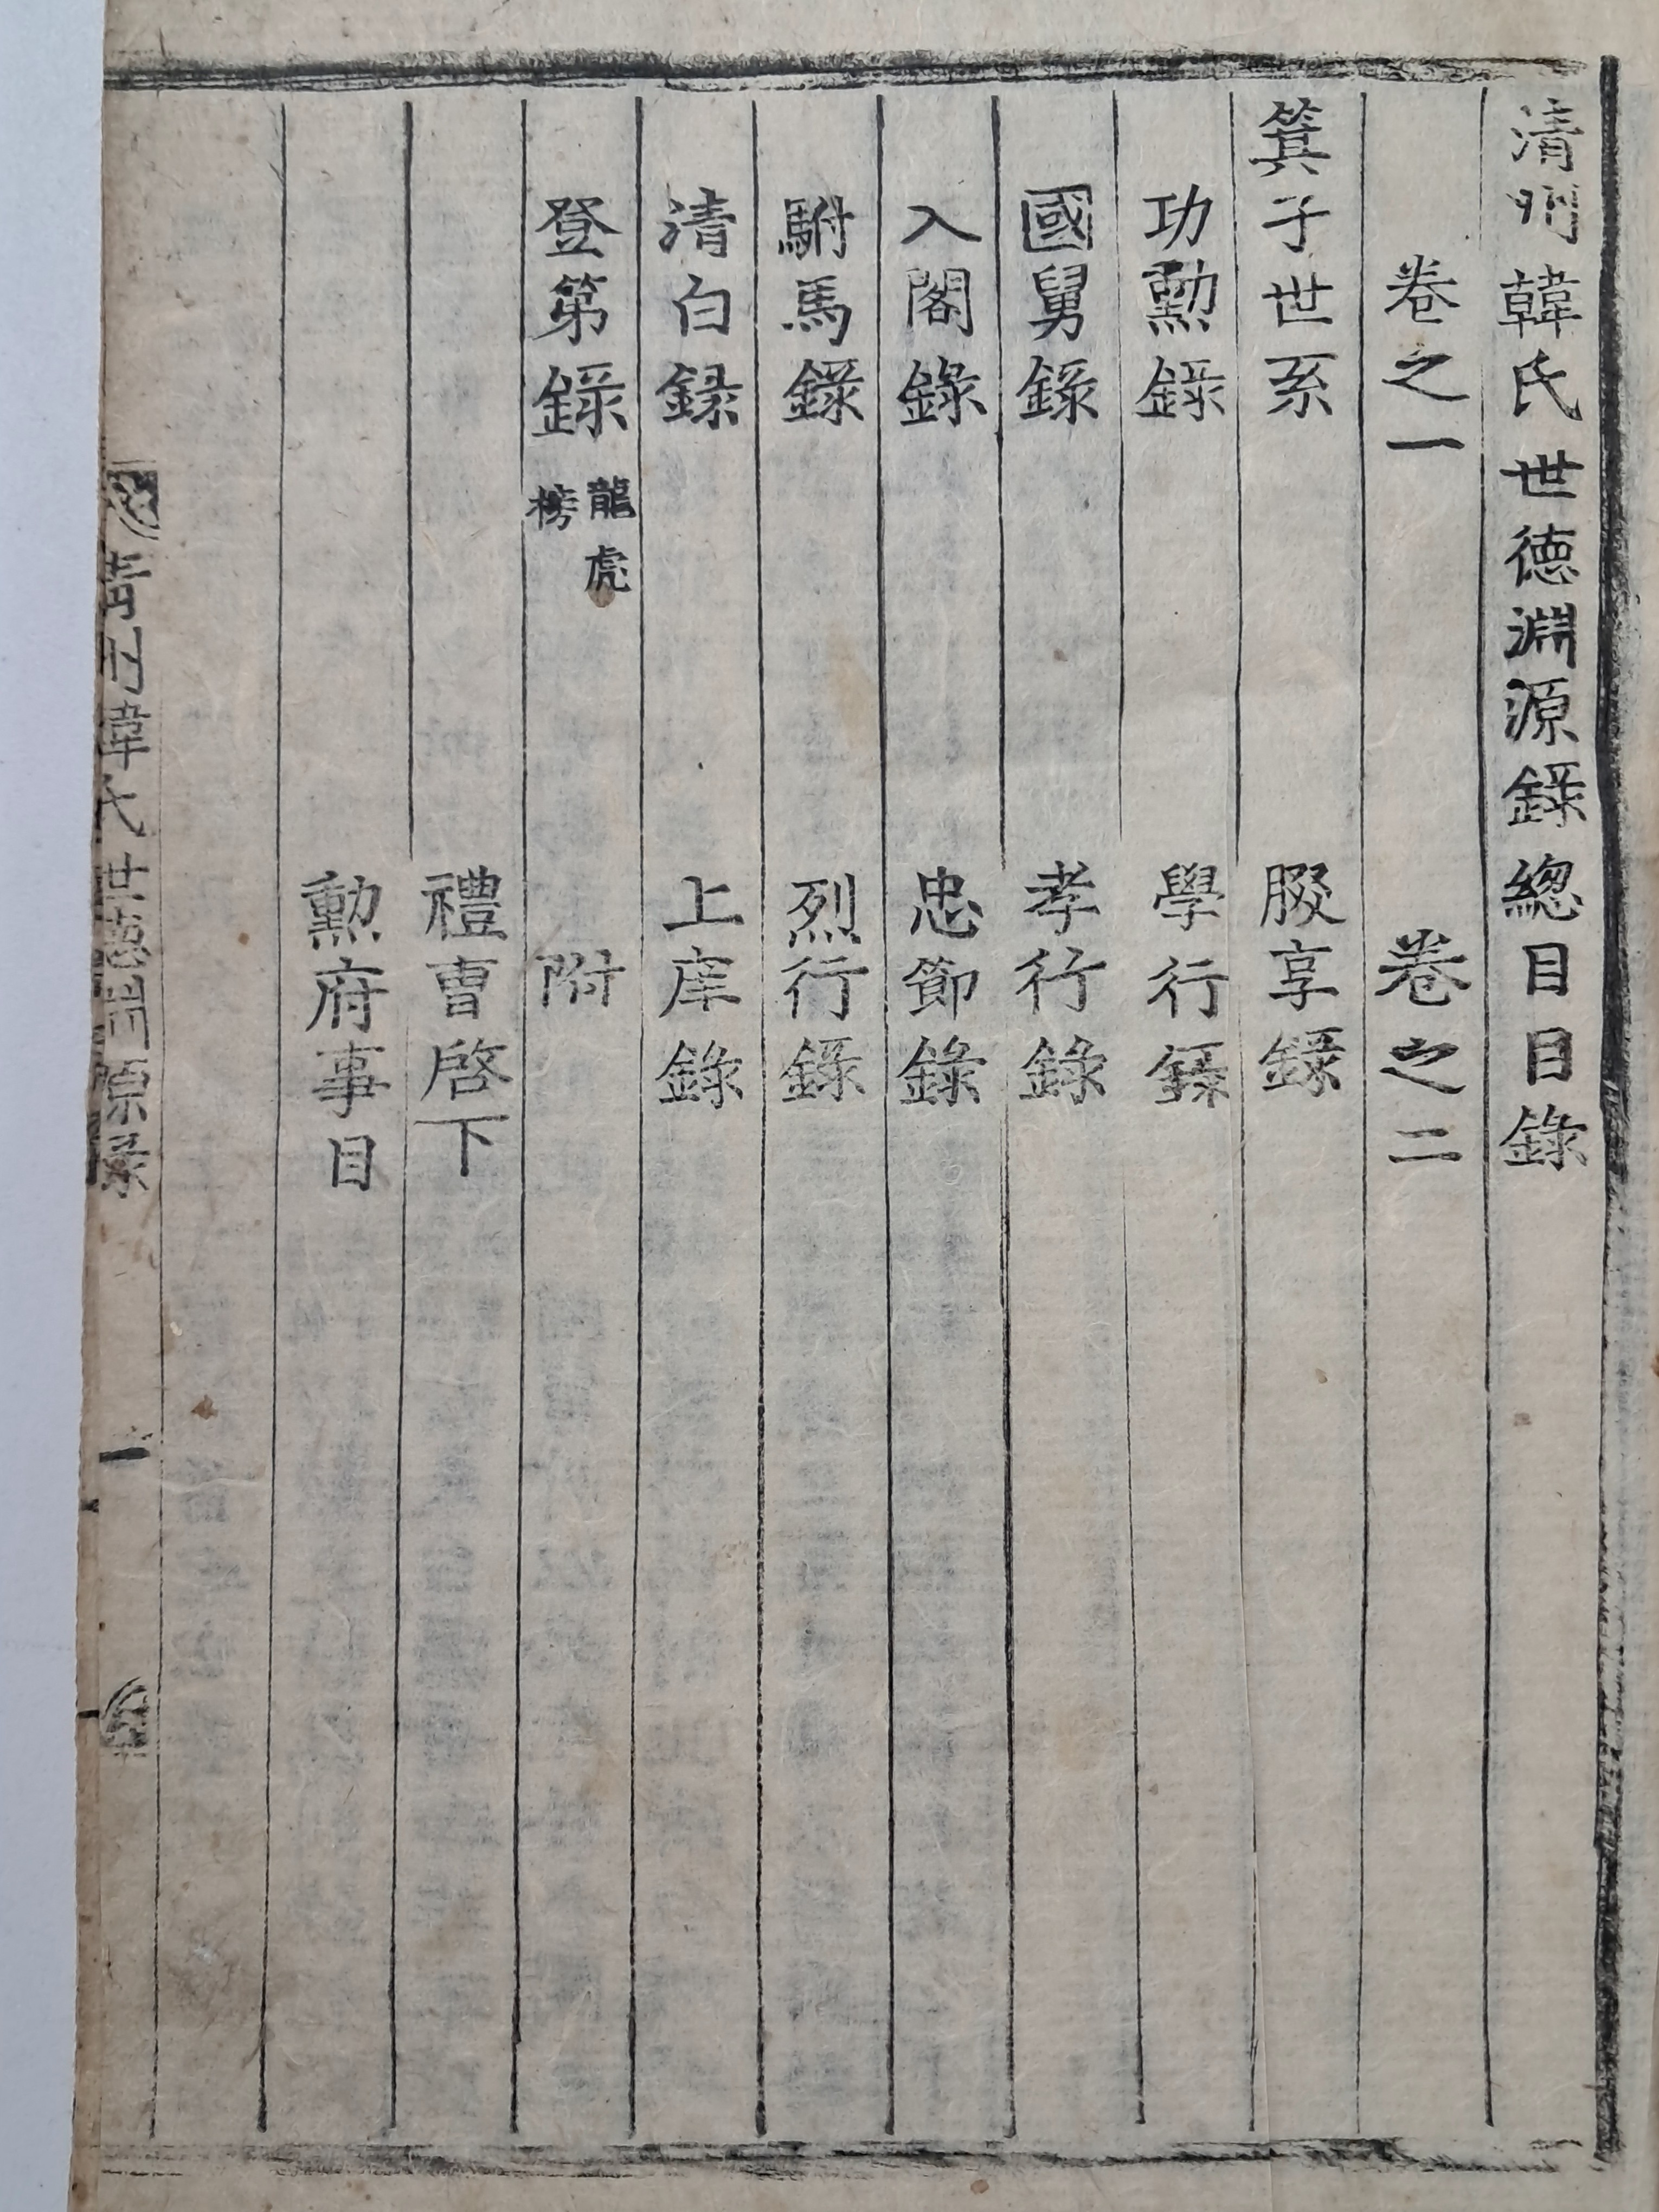 清州韓氏世德淵源錄總目目錄
卷之一
卷之二
箕子世系
腏享錄
功勳錄
學行錄
國舅錄
孝行錄
入閣錄
忠節錄
駙馬錄
烈行錄
清白錄
上庠錄
登第錄 龍虎榜
附
禮曹啓下
勳府事目
清州韓氏世德淵源錄 一